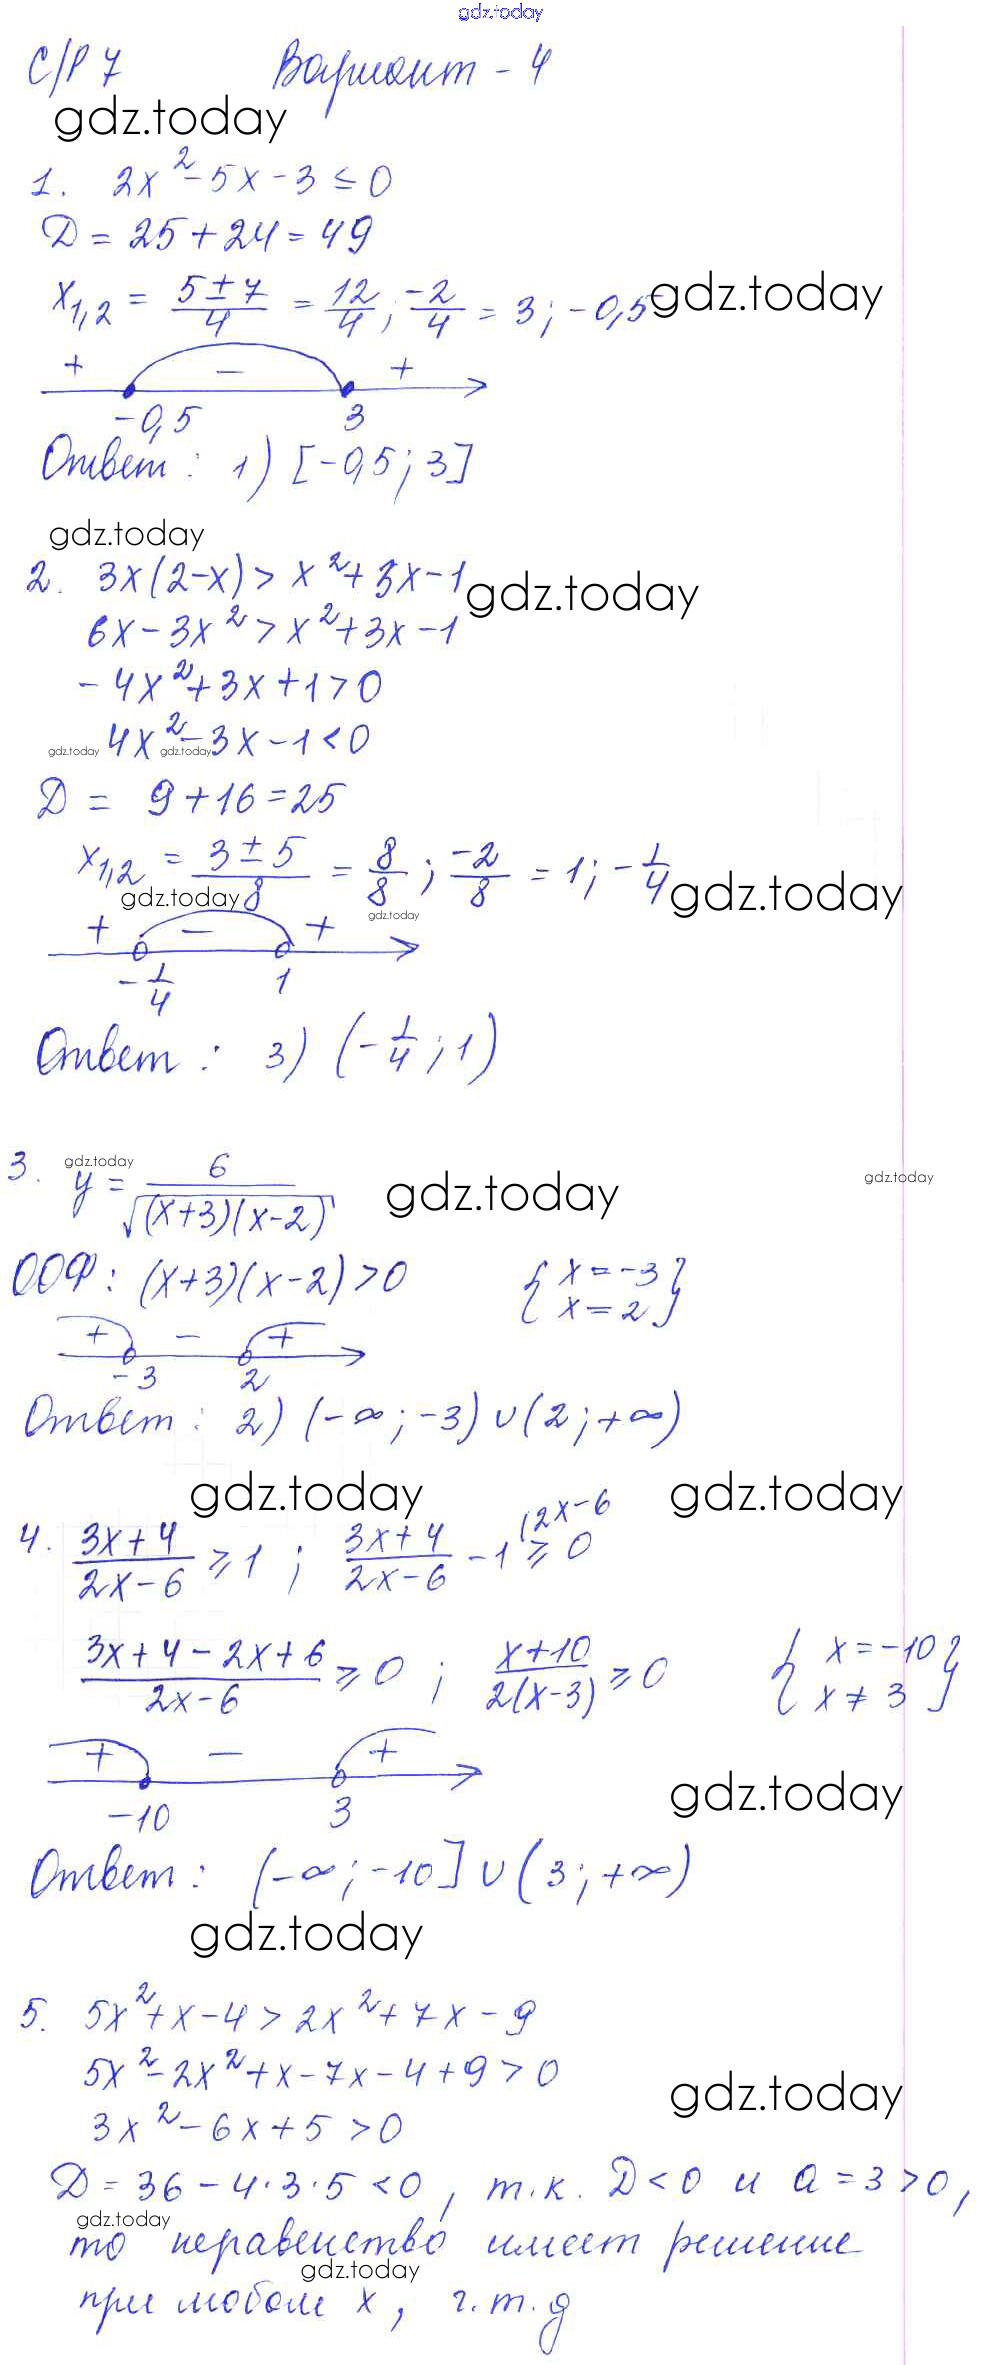 gdz.today
С/Р 7 Вариант - 4
gdz.today
1. 2x² - 5x - 3 ≤ 0
Д = 25 + 24 = 49
x₁,₂ = (5 ± 7)/4 = 12/4 ; -2/4 = 3 ; -0,5 gdz.today
+ − +
-0,5 3
Ответ : 1) [-0,5 ; 3]
gdz.today
2. 3x(2-x) > x² + 3x - 1 gdz.today
6x - 3x² > x² + 3x - 1
- 4x² + 3x + 1 > 0
gdz.today 4x² - 3x - 1 < 0 gdz.today
Д = 9 + 16 = 25
x₁,₂ = (3 ± 5)/8 = 8/8 ; -2/8 = 1 ; -1/4 gdz.today
gdz.today gdz.today
+ − +
-1/4 1
Ответ : 3) (-1/4 ; 1)
gdz.today
3. y = 6/√((x+3)(x-2)) gdz.today gdz.today
ООФ : (x+3)(x-2) > 0 { x = -3
x = 2 }
+ − +
-3 2
Ответ : 2) (-∞ ; -3) ∪ (2 ; +∞)
gdz.today gdz.today
4. (3x+4)/(2x-6) ≥ 1 ; (3x+4)/(2x-6) - 1 (2x-6 ≥ 0
(3x+4-2x+6)/(2x-6) ≥ 0 ; (x+10)/(2(x-3)) ≥ 0 { x = -10
x ≠ 3 }
+ − +
-10 3 gdz.today
Ответ : (-∞ ; -10] ∪ (3 ; +∞)
gdz.today
5. 5x² + x - 4 > 2x² + 7x - 9
5x² - 2x² + x - 7x - 4 + 9 > 0
gdz.today
3x² - 6x + 5 > 0
Д = 36 - 4·3·5 < 0 , т.к. Д < 0 и a = 3 > 0,
gdz.today
то неравенство имеет решение
gdz.today
при любом x, ч.т.д